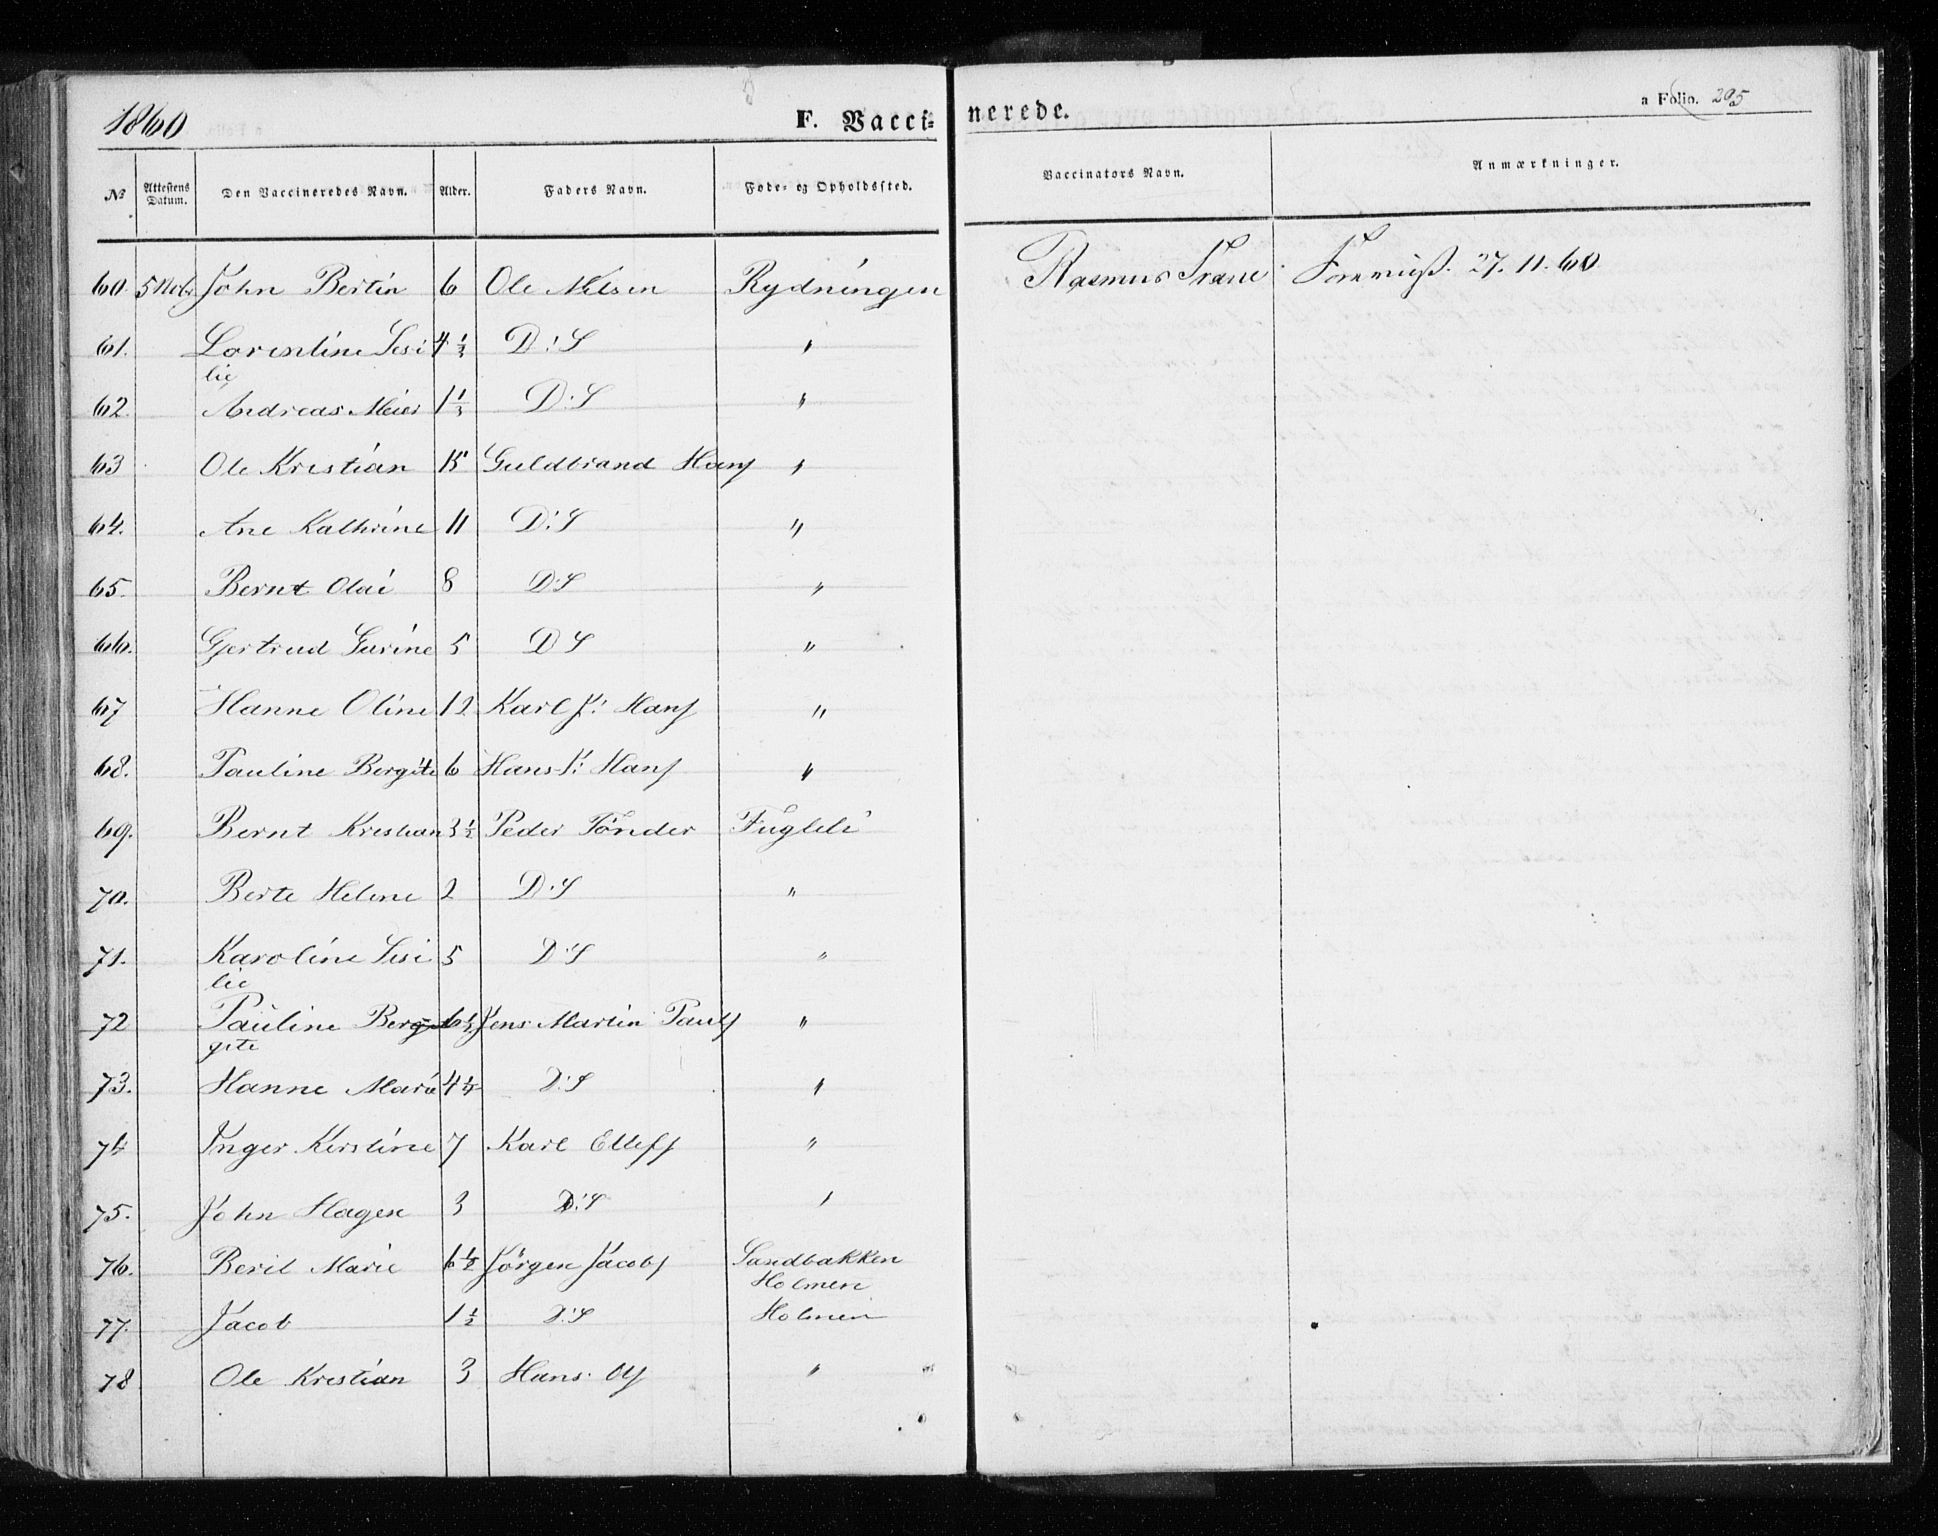 1860 F. Vacci- nerede. a Folio. 295
No Attestens Datum. Den Vaccineredes Navn. Alder. Faders Navn. Føde- og Opholdssted. Vaccinators Navn. Anmærkninger.
60. 5 Nobr John Bertin 6 Ole Nelsen Rydningen Rasmus Trane 27.11.60
61. Lorentine Sesi 4 1/3 D:S "
lie
62 Andreas Meier 1 1/3 D:S "
63 Ole Kristian 15 Guldbrand Hans "
64. Ane Kathrine 11 D:S "
65. Bernt Olai 8 D:S "
66. Gjertrud Surine 5 D S "
67 Hanne Oline 12 Karl J: Hans "
68. Pauline Bergite 6 Hans J: Hans "
69. Bernt Kristian 3 1/2 Peder Tönder Fugleli
70. Berte Helene 2 D.S "
71. Karoline Sesi 5 D:S "
lie
72 Pauline Berg 6 1/2 Jens Martin Pauls "
gite
73. Hanne Marie 4 1/4 D:S "
74 Inger Kirstine 7 Karl Ellefs "
75. John Hagen 3 D:S "
76. Beril Marie 6 1/2 Jörgen Jacobs Sandbakken
Holmen
77. Jacob 1 1/2 D:S Holmen
78 Ole Kristian 3 Hans Ols "